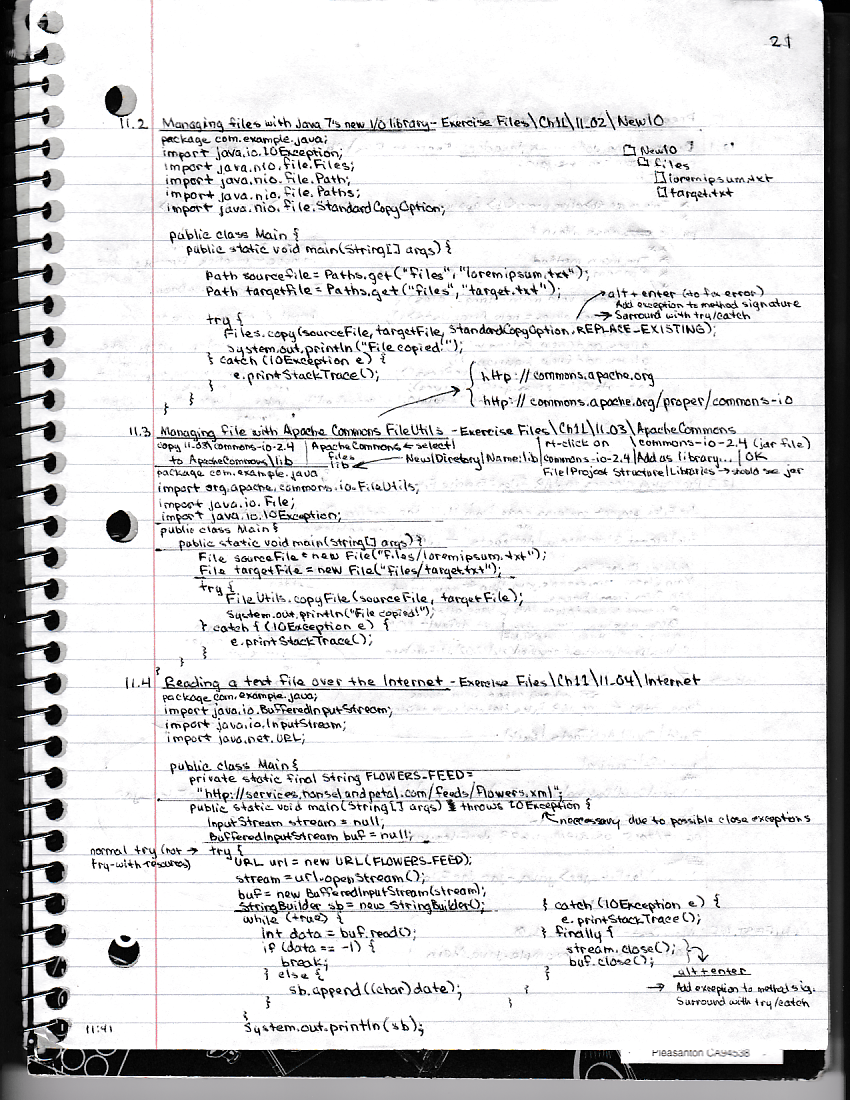 21
11.2 Managing files with Java 7's new I/O library - Exercise Files\Ch11\11_02\NewIO
package com.example.java;
import java.io.IOException;
import java.nio.file.Files;
import java.nio.file.Path;
import java.nio.file.Paths;
import java.nio.file.StandardCopyOption;
NewIO
files
loremipsum.txt
target.txt
public class Main {
public static void main(String[] args) {
Path sourcefile = Paths.get("files", "loremipsum.txt");
Path targetFile = Paths.get("files", "target.txt");
→ alt + enter (to fix error)
Add exception to method signature
→ Surround with try/catch
try {
Files.copy(sourceFile, targetFile, StandardCopyOption.REPLACE_EXISTING);
System.out.println("File copied!");
} catch (IOException e) {
e.printStackTrace();
}
}
}
{ http://commons.apache.org
http://commons.apache.org/proper/commons-io
11.3 Managing file with Apache Commons FileUtils - Exercise Files\Ch11\11_03\ApacheCommons
copy 11_03\commons-io-2.4 | ApacheCommons ← select | rt-click on \commons-io-2.4 (jar file)
to ApacheCommons\lib | files lib ← New|Directory|Name:lib | commons-io-2.4 | Add as library... | OK
File|Project Structure|Libraries → should see jar
package com.example.java;
import org.apache.commons.io.FileUtils;
import java.io.File;
import java.io.IOException;
public class Main {
public static void main(String[] args) {
File sourceFile = new File("files/loremipsum.txt");
File targetFile = new File("files/target.txt");
try {
FileUtils.copyFile(sourceFile, targetFile);
System.out.println("File copied!");
} catch { (IOException e) {
e.printStackTrace();
}
}
}
11.4 Reading a text file over the Internet - Exercise Files\Ch11\11_04\Internet
package com.example.java;
import java.io.BufferedInputStream;
import java.io.InputStream;
import java.net.URL;
public class Main {
private static final String FLOWERS_FEED =
"http://services.hanselandpetal.com/feeds/flowers.xml";
public static void main(String[] args) throws IOException {
necessary due to possible close exceptions
InputStream stream = null;
BufferedInputStream buf = null;
normal try (not →
try-with resources)
try {
URL url = new URL(FLOWERS_FEED);
stream = url.openStream();
buf = new BufferedInputStream(stream);
StringBuilder sb = new StringBuilder();
while (true) {
int data = buf.read();
if (data == -1) {
break;
} else {
sb.append((char)date);
}
}
System.out.println(sb);
} catch (IOException e) {
e.printStackTrace();
} finally {
stream.close();
buf.close();
}
}
}
alt+enter
→ Add exception to method sig.
Surround with try/catch
11:41
Pleasanton CA94538